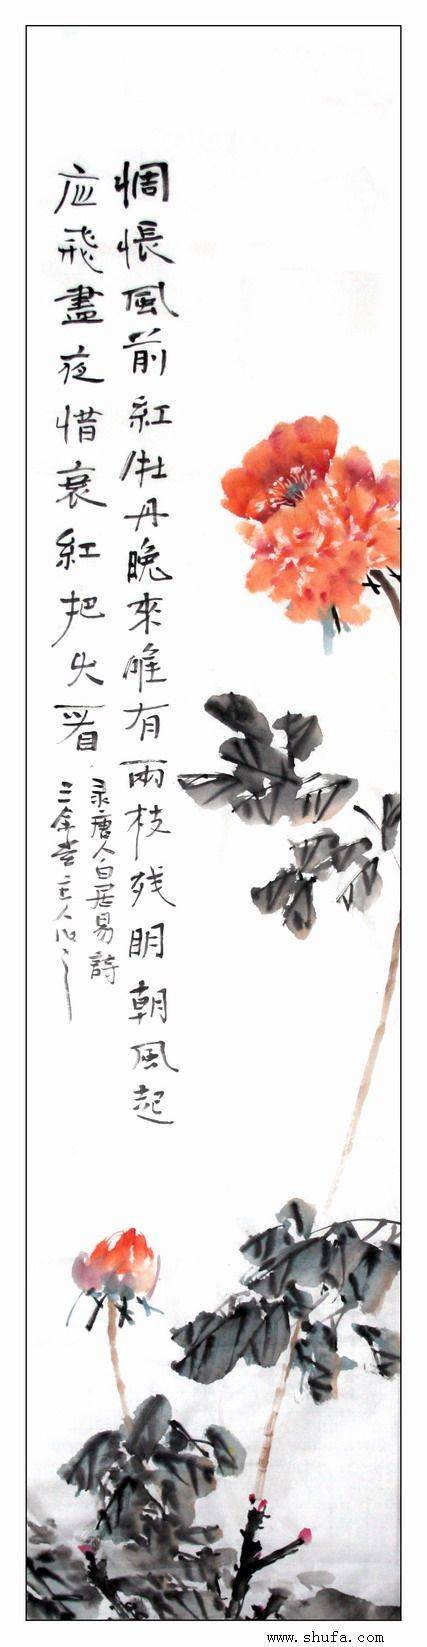 惆悵風前紅牡丹晚來唯有兩枝残明朝風起
应飛盡夜惜衰紅把火看
录唐人白居易詩
三余堂主人
www.shufa.com